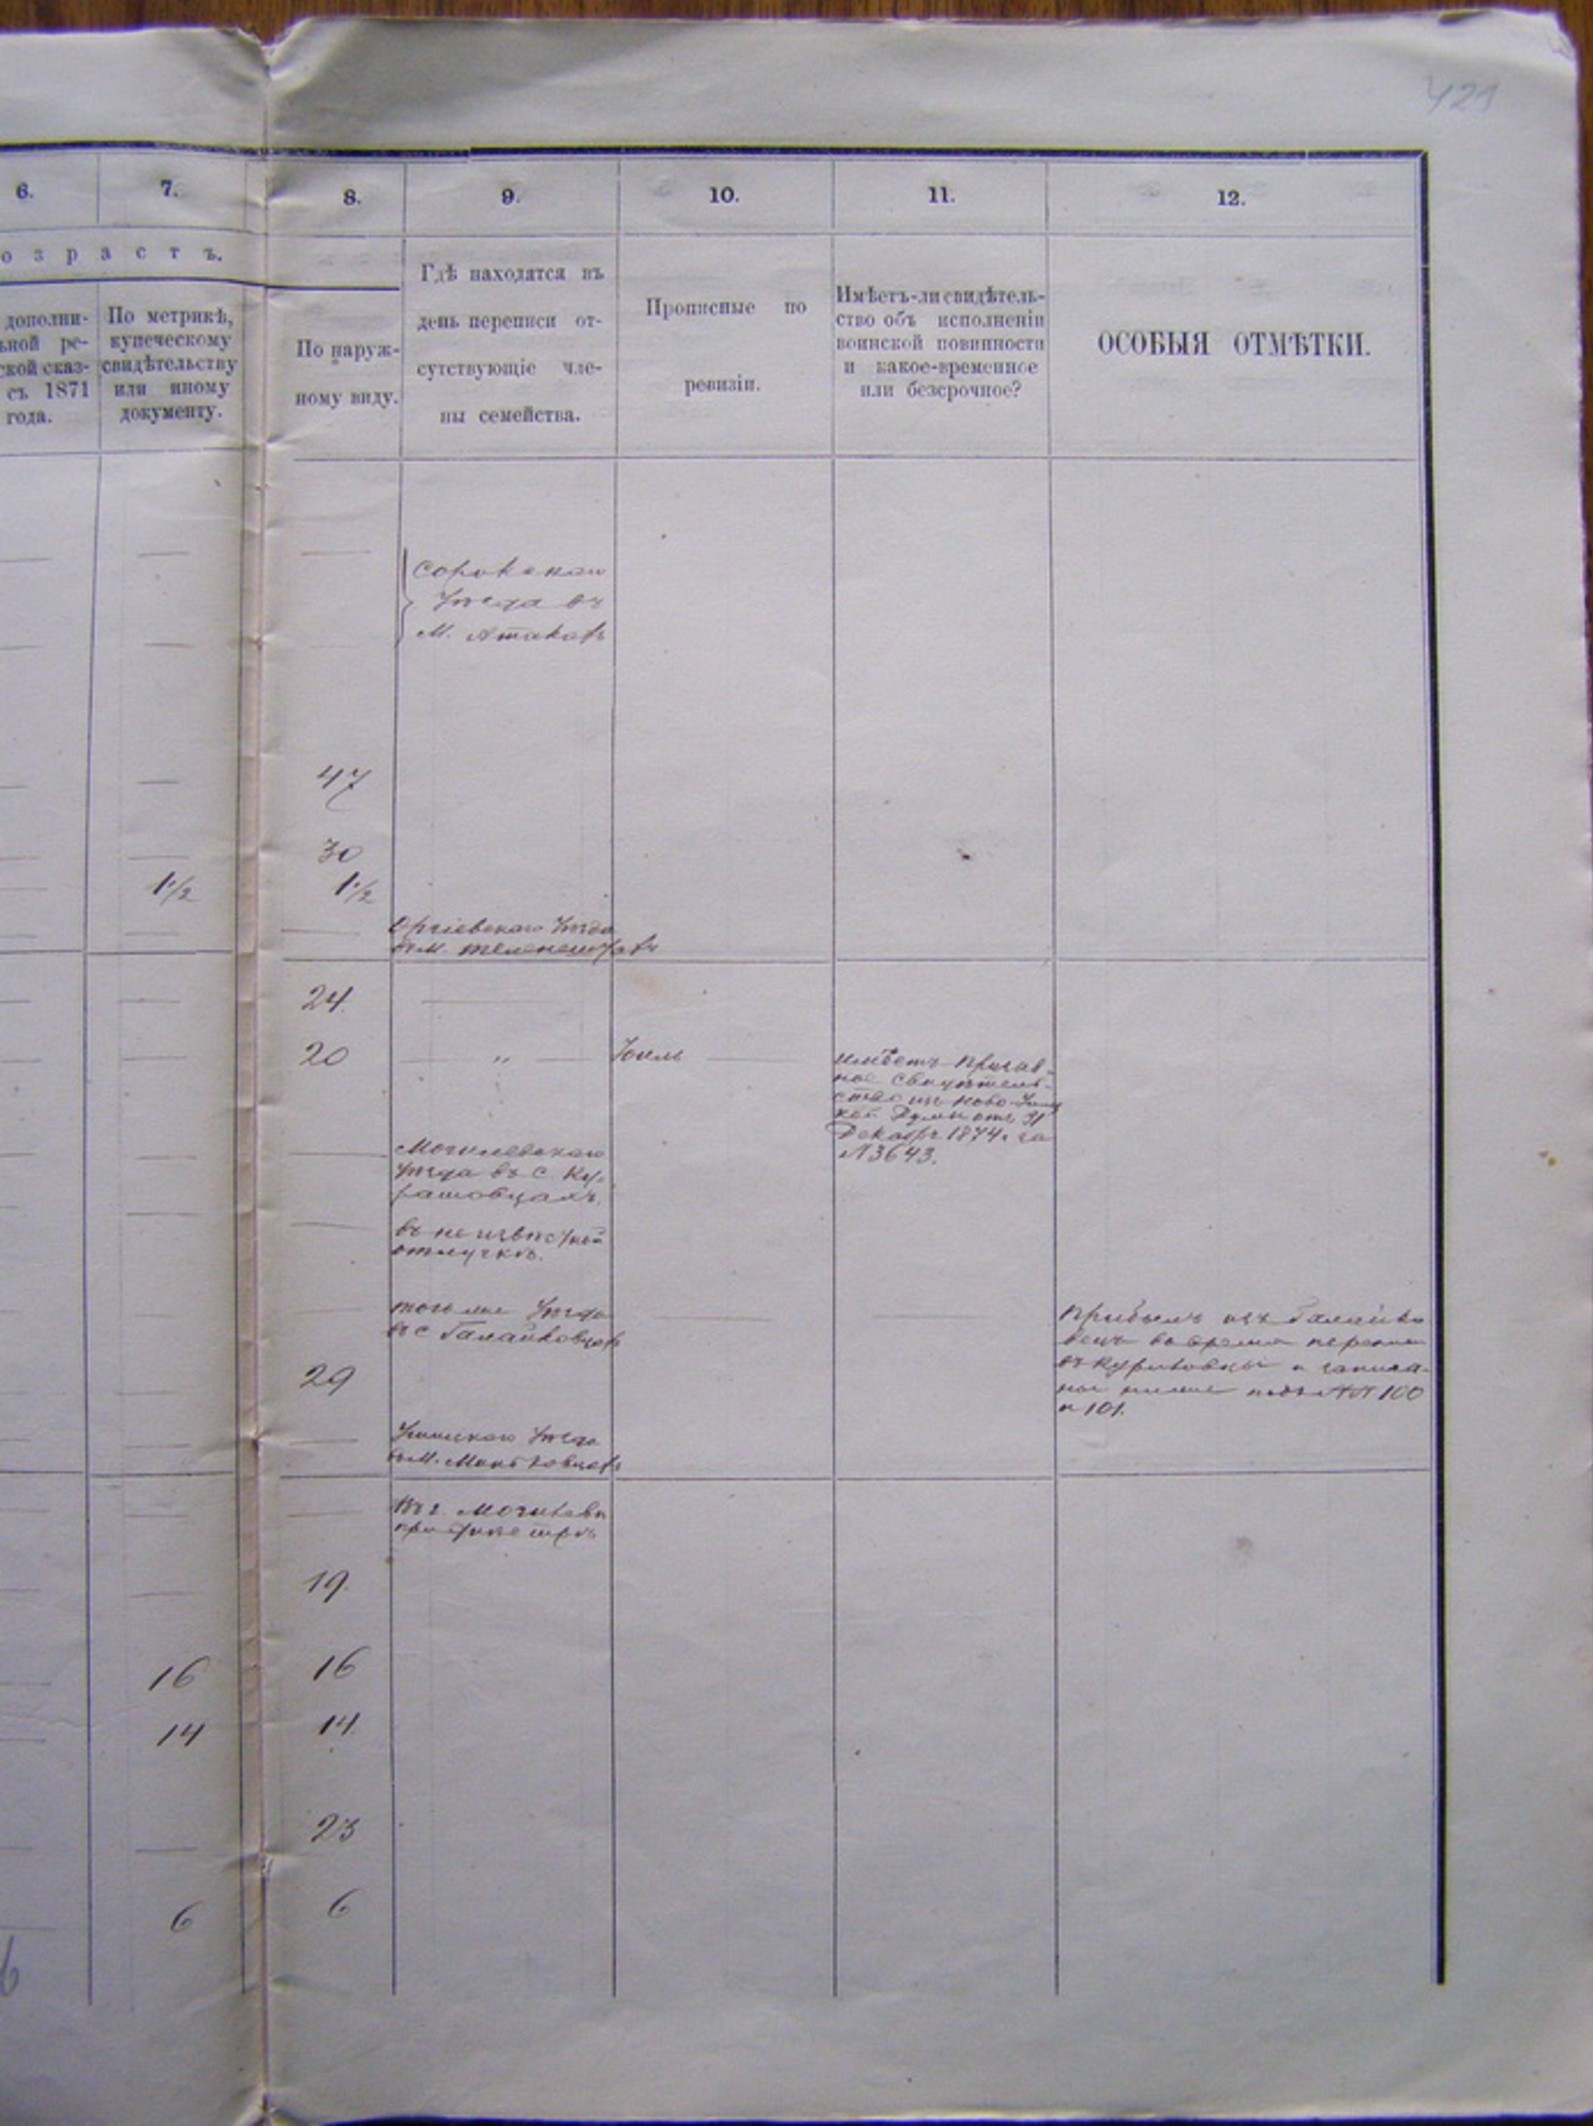 421
6. 7. 8. 9. 10. 11. 12.
о з р а с т ъ.
дополни-
ьной ре-
ской сказ-
съ 1871
года.
По метрикѣ,
купеческому
свидѣтельству
или иному
документу.
По наруж-
ному виду.
Гдѣ находятся въ
день переписи от-
сутствующіе чле-
ны семейства.
Прописные по
ревизіи.
Имѣетъ-ли свидѣтель-
ство объ исполненіи
воинской повинности
и какое-временное
или безсрочное?
ОСОБЫЯ ОТМѢТКИ.
Сорокскаго
Уѣзда въ
М. Атакахъ
47
30
1½ 1½
Оргіевскаго Уѣзда
въ М. Теленештахъ
24.
20 " Іоиль
имѣетъ Призыв-
ное Свидѣтель-
ство изъ Ново-
кой Думы отъ 31
Декабря 1874 г. за
№ 3643.
Могилевскаго
Уѣзда въ С. Ку-
рашовцахъ.
въ неизвѣстной
отлучкѣ.
того же Уѣзда
въ с Галайковцахъ
Прибылъ изъ Галайко
вецъ во время переписи
въ и записа-
ны ниже подъ №№ 100
и 101.
29
Ушицкаго Уѣзда
въ М. Миньковцахъ
Въ г. Могилевѣ
при Днѣстрѣ
19.
16 16
14 14.
23
6 6